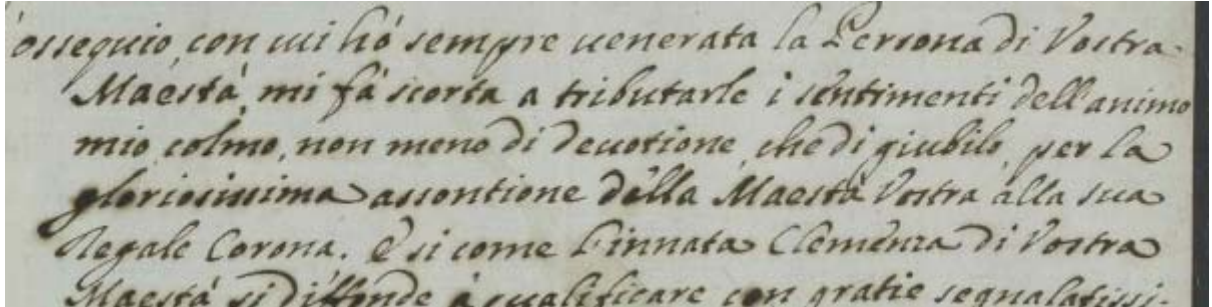 ossequio, con cui hó sempre uenerata la Persona di Vostra
Maestá, mi fá scorta a tributarle i sentimenti dell'animo
mio colmo, non meno di deuotione, che di giubilo, per la
gloriosissima assontione della Maestà Vostra alla sua
Regale Corona. E si come l'innata Clemenza di Vostra
Maestá si diffonde à qualificare con gratie segnalatissi